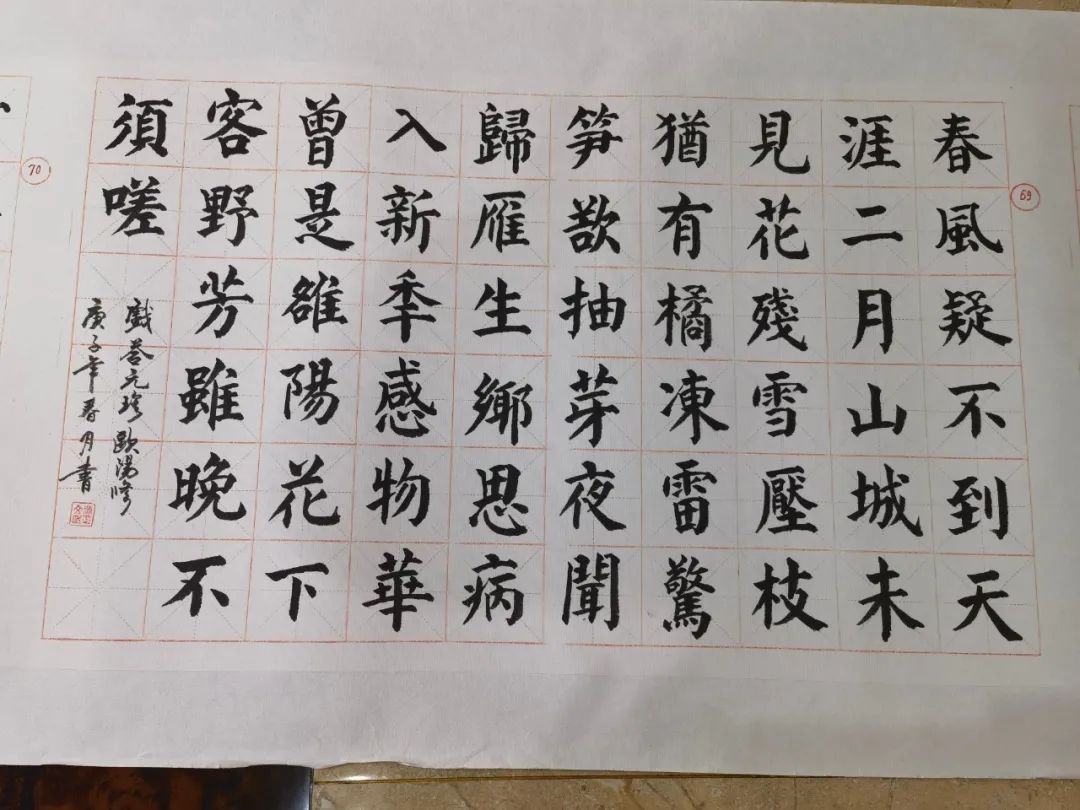 69
春風疑不到天
涯二月山城未
見花殘雪壓枝
猶有橘凍雷驚
笋欲抽芽夜聞
歸雁生鄉思病
入新秊感物華
曾是雒陽花下
客野芳雖晚不
須嗟
戲答元珍歐陽修
庚子年春月書
70